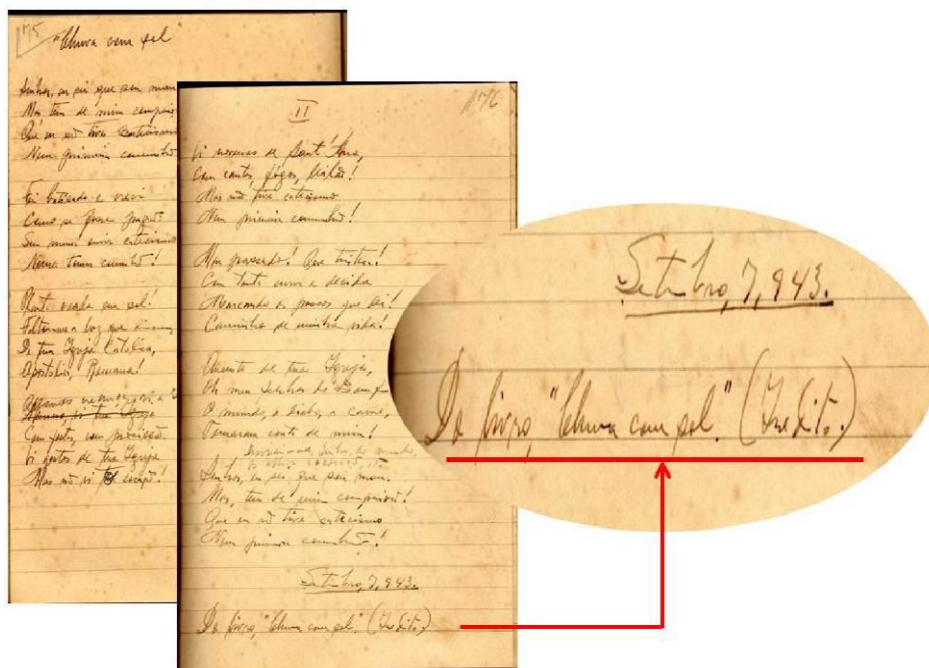 175
"Chuva com sol"
Senhor, eu sei que sou mau
Mas tem de mim compaixão
Que eu não tive catecismo
Nem primeira comunhão
Fui batizado e vivi
Como se fosse pagão
Sem nunca ouvir catecismo
Nunca tomei comunhão!
sol!
Faltou-me a voz que
Da tua Igreja Católica,
Apostólica, Romana!
Com festas, com procissão.
Vi festas de tua Igreja
Mas não vi coração!
II
176
Vi novenas de Sant'Ana,
Com cantos, fogos, leilão!
Mas não tive catecismo
Nem primeira comunhão!
Meu passado! Que tristeza!
Com tanta curva e decida
Marcando os passos que dei!
Caminhos de minha vida!
Ausente de tua Igreja,
Oh meu Senhor do
O mundo, o diabo, a carne,
Tomaram conta de mim!
Senhor, eu sei que sou mau.
Mas, tem de mim compaixão!
Que eu não tive catecismo
Nem primeira comunhão!
Setembro, 7, 943.
Do livro, "Chuva com sol." (Inédito.)
Setembro, 7, 943.
Do livro, "Chuva com sol." (Inédito.)